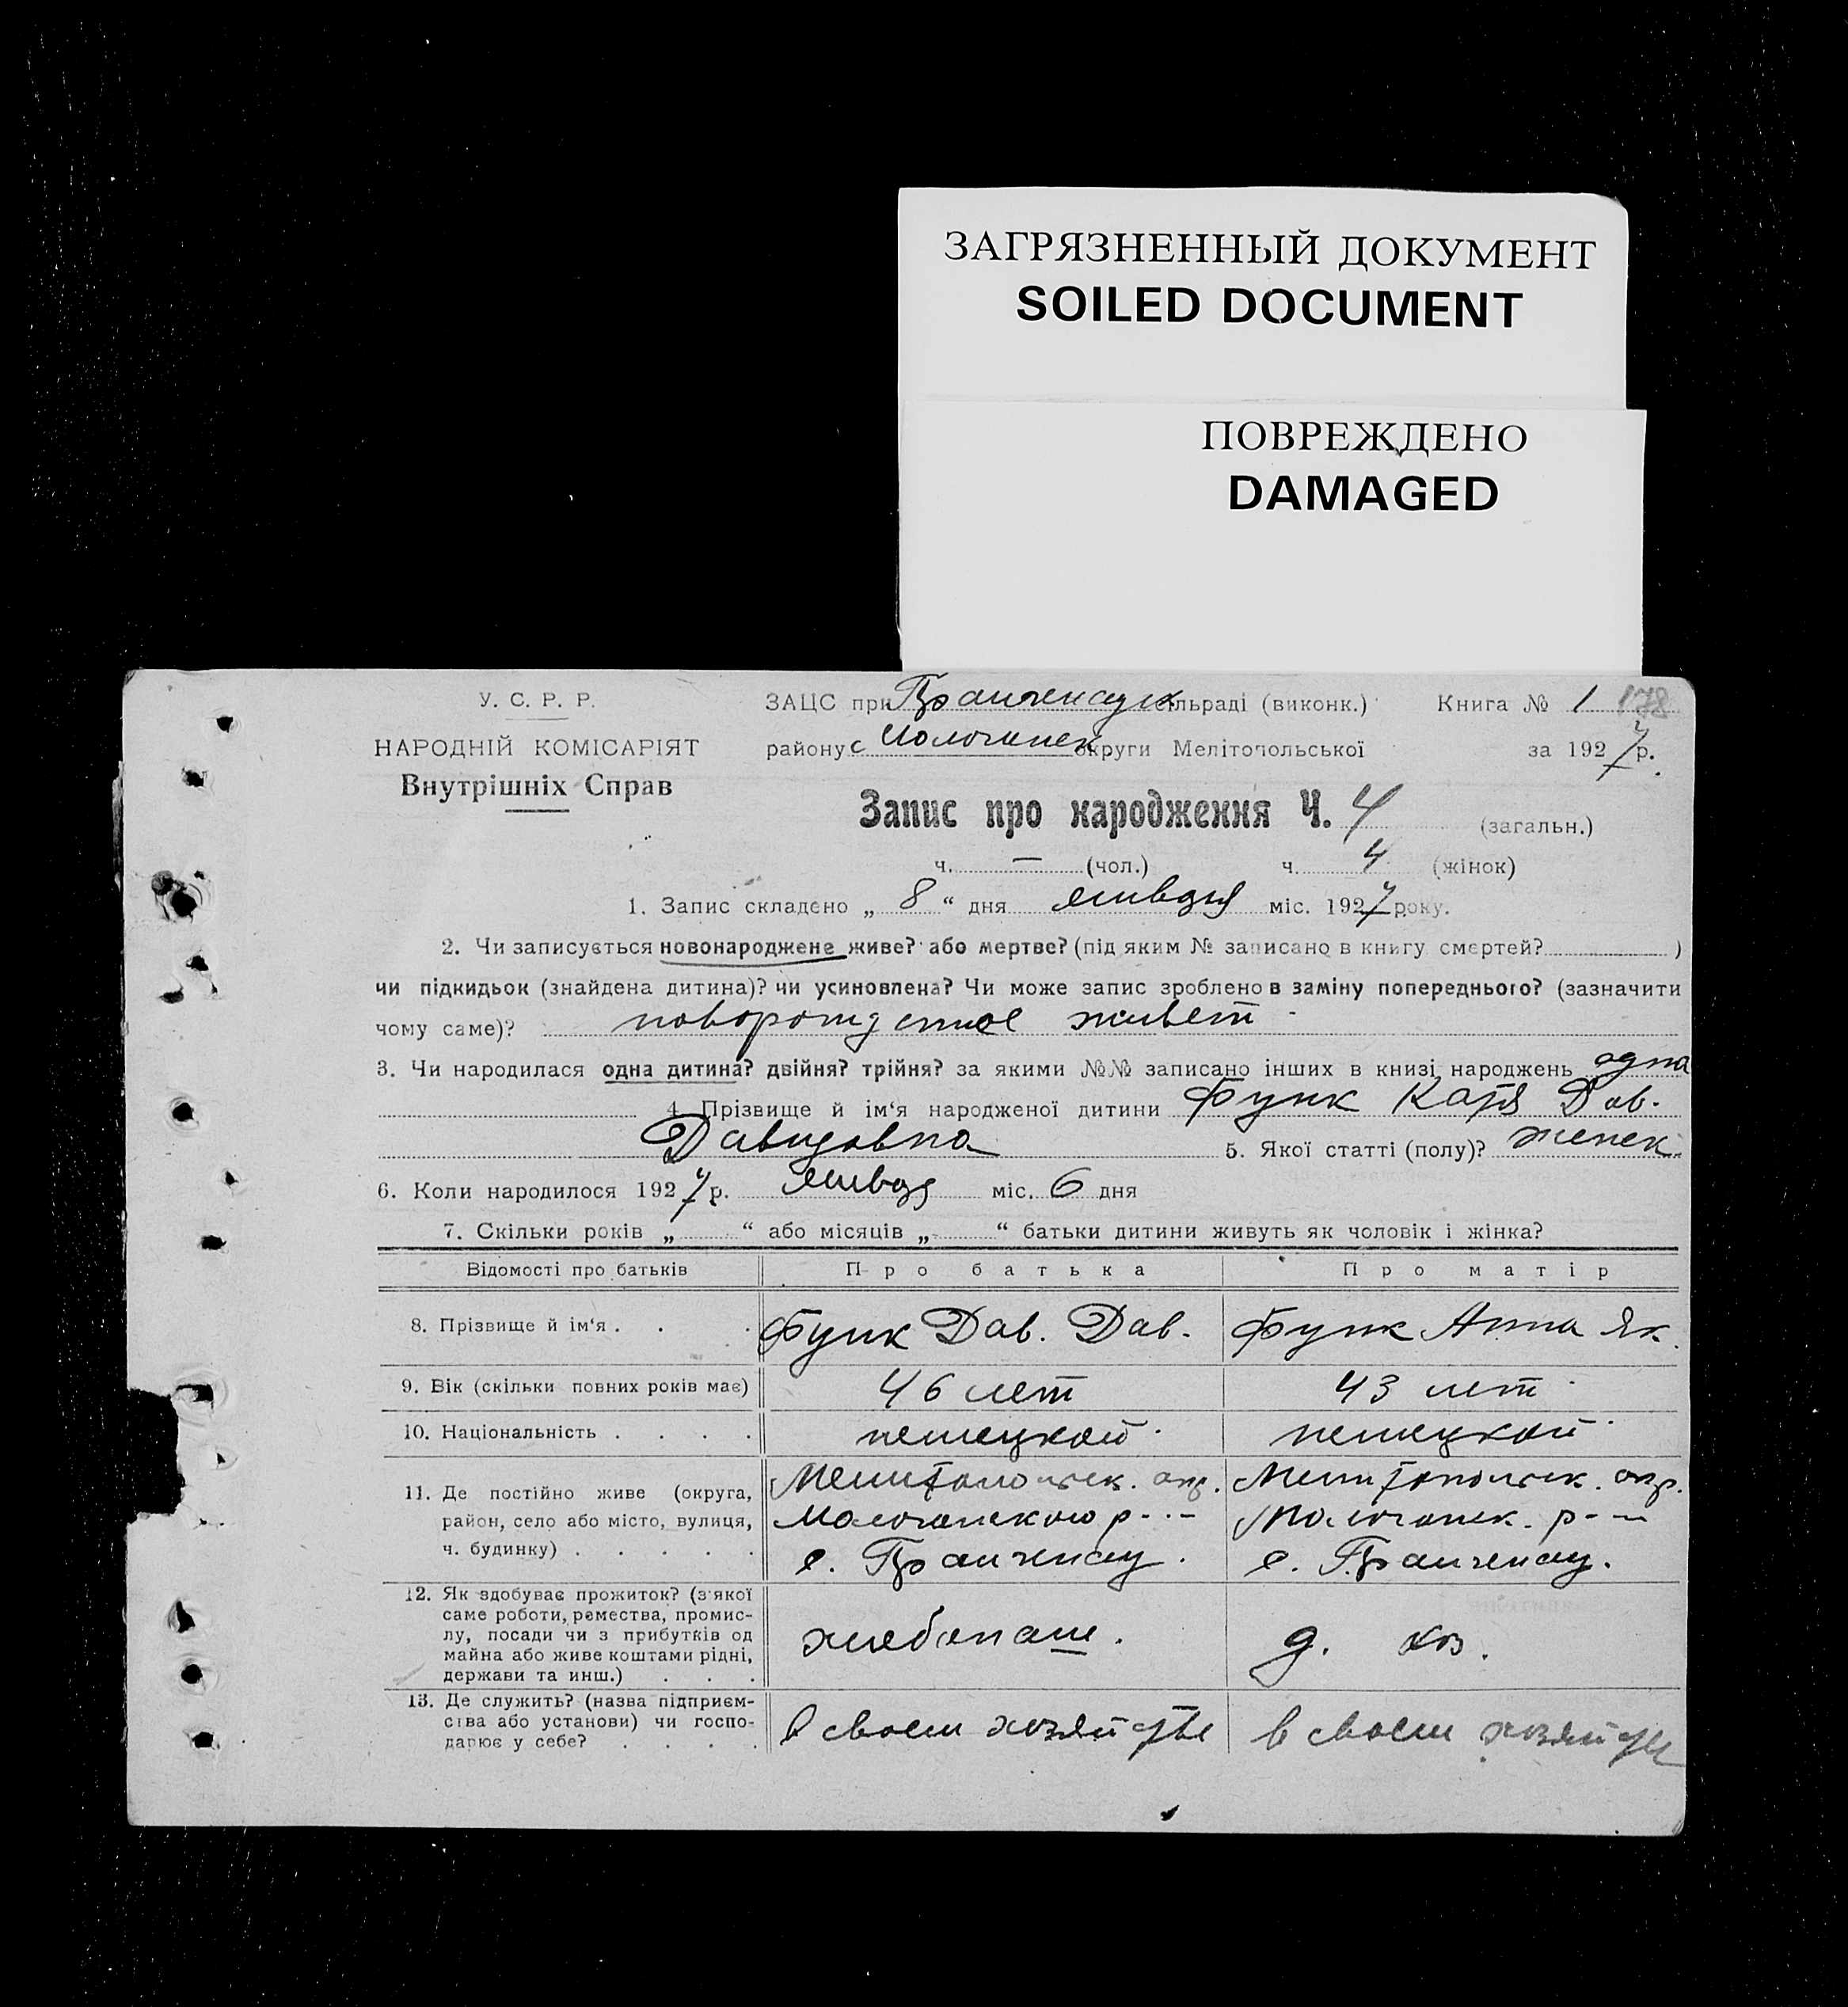 ЗАГРЯЗНЕННЫЙ ДОКУМЕНТ
SOILED DOCUMENT
ПОВРЕЖДЕНО
DAMAGED
У. С. Р. Р.
НАРОДНІЙ КОМІСАРІЯТ
Внутрішніх Справ
ЗАЦС при сільраді (виконк.) Книга № 1 178
району Молочанск округи Мелітопольської за 1927 р.
Запис про народження Ч. 4 (загальн.)
ч. — (чол.) ч. 4 (жінок)
1. Запис складено „ 8 “ дня января міс. 1927 року.
2. Чи записується новонароджене живе? або мертве? (під яким № записано в книгу смертей? )
чи підкидьок (знайдена дитина)? чи усиновлена? Чи може запис зроблено в заміну попереднього? (зазначити
чому саме)? новорожденное живет
3. Чи народилася одна дитина? двійня? трійня? за якими №№ записано інших в книзі народжень одна
4. Прізвище й ім‘я народженої дитини Функ Катя Дав.
Давидовна 5. Якої статті (полу)? женск.
6. Коли народилося 1927 р. январ міс. 6 дня
7. Скільки років „ “ або місяців „ “ батьки дитини живуть як чоловік і жінка?
Відомості про батьків Про батька Про матір
8. Прізвище й ім‘я . . . Функ Дав. Дав. Функ Анна Як.
9. Вік (скільки повних років має) 46 лет 43 лет
10. Національність . . . . немецкой немецкой
11. Де постійно живе (округа, Мелитопольск. окр. Мелитопольск. окр.
район, село або місто, вулиця, Молочанского р-- Молочанск. р-н
ч. будинку) . . . . . с. Бранженау. с. Бранженау.
12. Як здобуває прожиток? (з якої
саме роботи, ремества, промис-
лу, посади чи з прибутків од хлебопаш. д. хоз.
майна або живе коштами рідні,
держави та инш.) . . .
13. Де служить? (назва підприєм-
ства або установи) чи госпо- в своем хозяйстве в своем хозяйстве
дарює у себе? . . . .